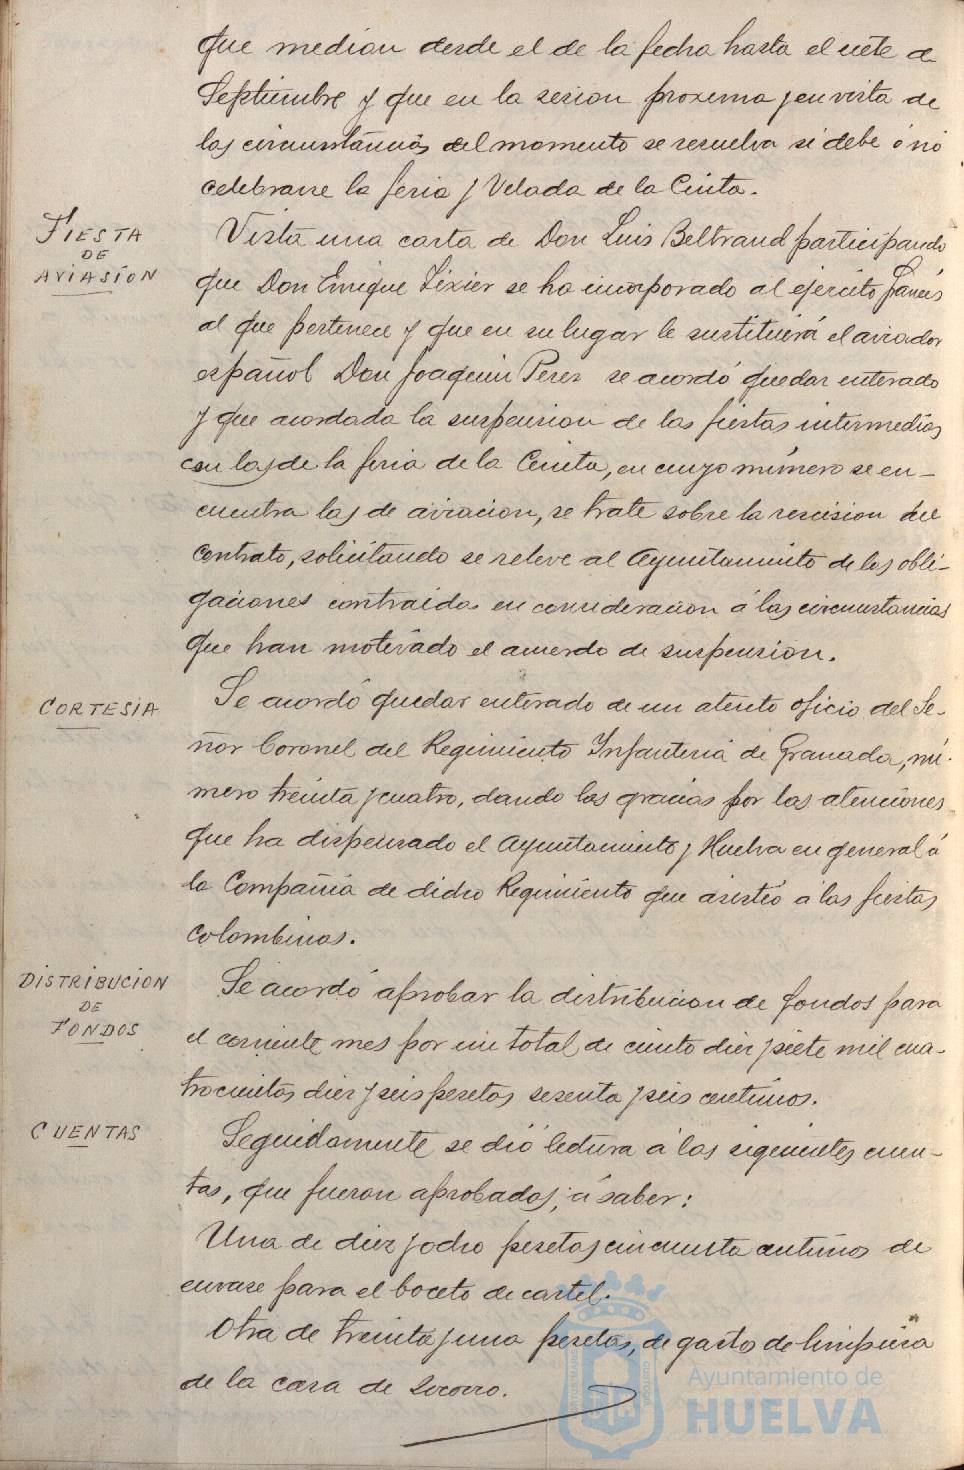 que median desde el de la fecha hasta el siete de
Septiembre y que en la sesion proxima y en vista de
las circunstancias del momento se resuelva si debe ó nó
celebrarse la feria y Velada de la Cinta.
FIESTA
DE
AVIASIÓN
Vista una carta de Don Luis Beltrand participando
que Don Enrique Tixier se ha incorporado al ejercito francés
al que pertenece y que en su lugar le sustituirá el aviador
español Don Joaquin Perez se acordó quedar enterado
y que acordada la suspension de las fiestas intermedias
con las de la feria de la Cinta, en cuyo número se en-
cuentra las de aviacion, se trate sobre la rescision del
contrato, solicitando se releve al Ayuntamiento de las obli-
gaciones contraidas en consideracion á las circunstancias
que han motivado el acuerdo de suspension.
CORTESIA
Se acordó quedar enterado de un atento oficio del Se-
ñor Coronel del Regimiento Infanteria de Granada, nú-
mero treinta y cuatro, dando las gracias por las atenciones
que ha dispensado el Ayuntamiento y Huelva en general á
la Compañia de dicho Regimiento que asistió á las fiestas
colombinas.
DISTRIBUCION
DE
FONDOS
Se acordó aprobar la distribucion de fondos para
el corriente mes por un total de ciento diez y siete mil cua-
trocientas diez y seis pesetas sesenta y seis centimos.
CUENTAS
Seguidamente se dió lectura á las siguientes cuen-
tas, que fueron aprobadas, á saber:
Una de diez y ocho pesetas cincuenta centimos de
envase para el boceto de cartel.
Otra de treinta y una pesetas, de gastos de limpieza
de la casa de Socorro.
Ayuntamiento de
HUELVA